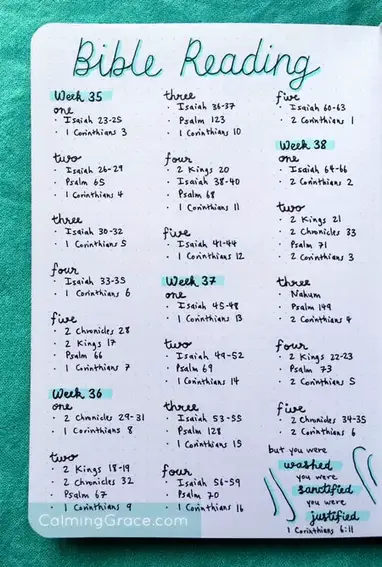 Bible Reading
Week 35
one
· Isaiah 23-25
· 1 Corinthians 3
two
· Isaiah 26-29
· Psalm 65
· 1 Corinthians 4
three
· Isaiah 30-32
· 1 Corinthians 5
four
· Isaiah 33-35
· 1 Corinthians 6
five
· 2 Chronicles 28
· 2 Kings 17
· Psalm 66
· 1 Corinthians 7
Week 36
one
· 2 Chronicles 29-31
· 1 Corinthians 8
two
· 2 Kings 18-19
· 2 Chronicles 32
· Psalm 67
· 1 Corinthians 9
three
· Isaiah 36-37
· Psalm 123
· 1 Corinthians 10
four
· 2 Kings 20
· Isaiah 38-40
· Psalm 68
· 1 Corinthians 11
five
· Isaiah 41-44
· 1 Corinthians 12
Week 37
one
· Isaiah 45-48
· 1 Corinthians 13
two
· Isaiah 49-52
· Psalm 69
· 1 Corinthians 14
three
· Isaiah 53-55
· Psalm 128
· 1 Corinthians 15
four
· Isaiah 56-59
· Psalm 70
· 1 Corinthians 16
five
· Isaiah 60-63
· 2 Corinthians 1
Week 38
one
· Isaiah 64-66
· 2 Corinthians 2
two
· 2 Kings 21
· 2 Chronicles 33
· Psalm 71
· 2 Corinthians 3
three
· Nahum
· Psalm 149
· 2 Corinthians 4
four
· 2 Kings 22-23
· Psalm 73
· 2 Corinthians 5
five
· 2 Chronicles 34-35
· 2 Corinthians 6
but you were
washed
you were
sanctified
you were
justified
1 Corinthians 6:11
CalmingGrace.com